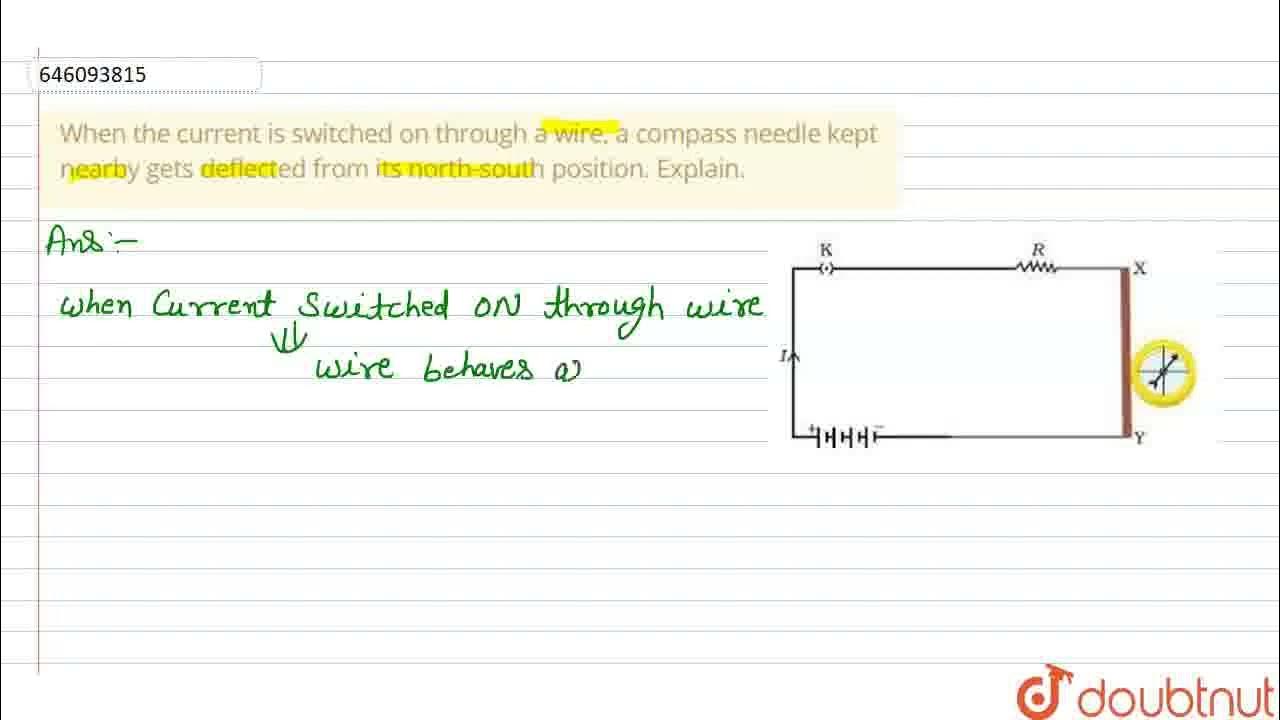 646093815
When the current is switched on through a wire, a compass needle kept
nearby gets deflected from its north-south position. Explain.
Ans:-
When Current Switched ON through wire
wire behaves a
K
R
X
I
+
-
Y
doubtnut